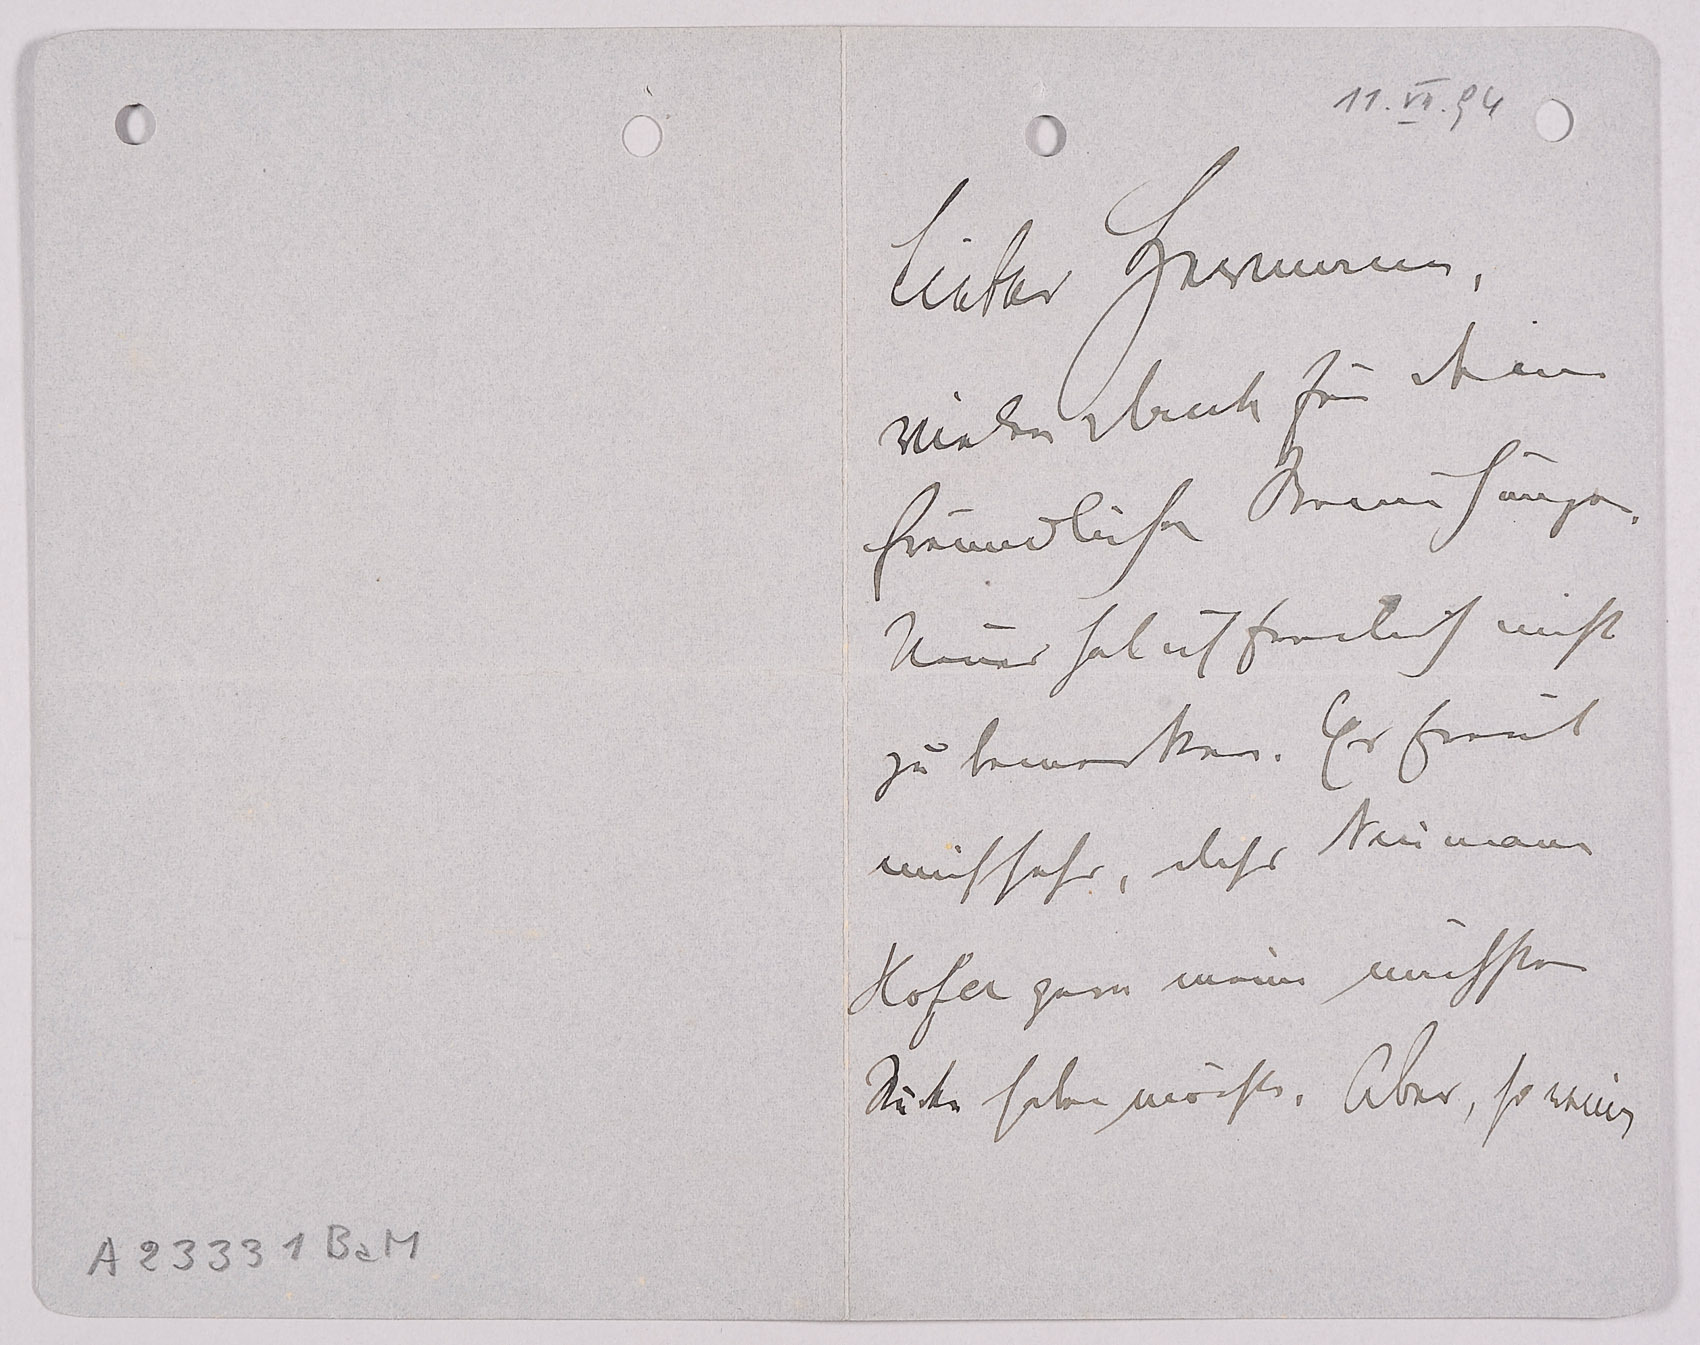 11.VII.94
Lieber Hermann,
vielen Dank für Deine
freundlichen Bemühungen.
Neues hab ich freilich nicht
zu bemerken. Es freut
mich sehr, daß Neumann
Hofer gern meine nächsten
Stücke haben möchte. Aber, so wenig
A 23331 BaM